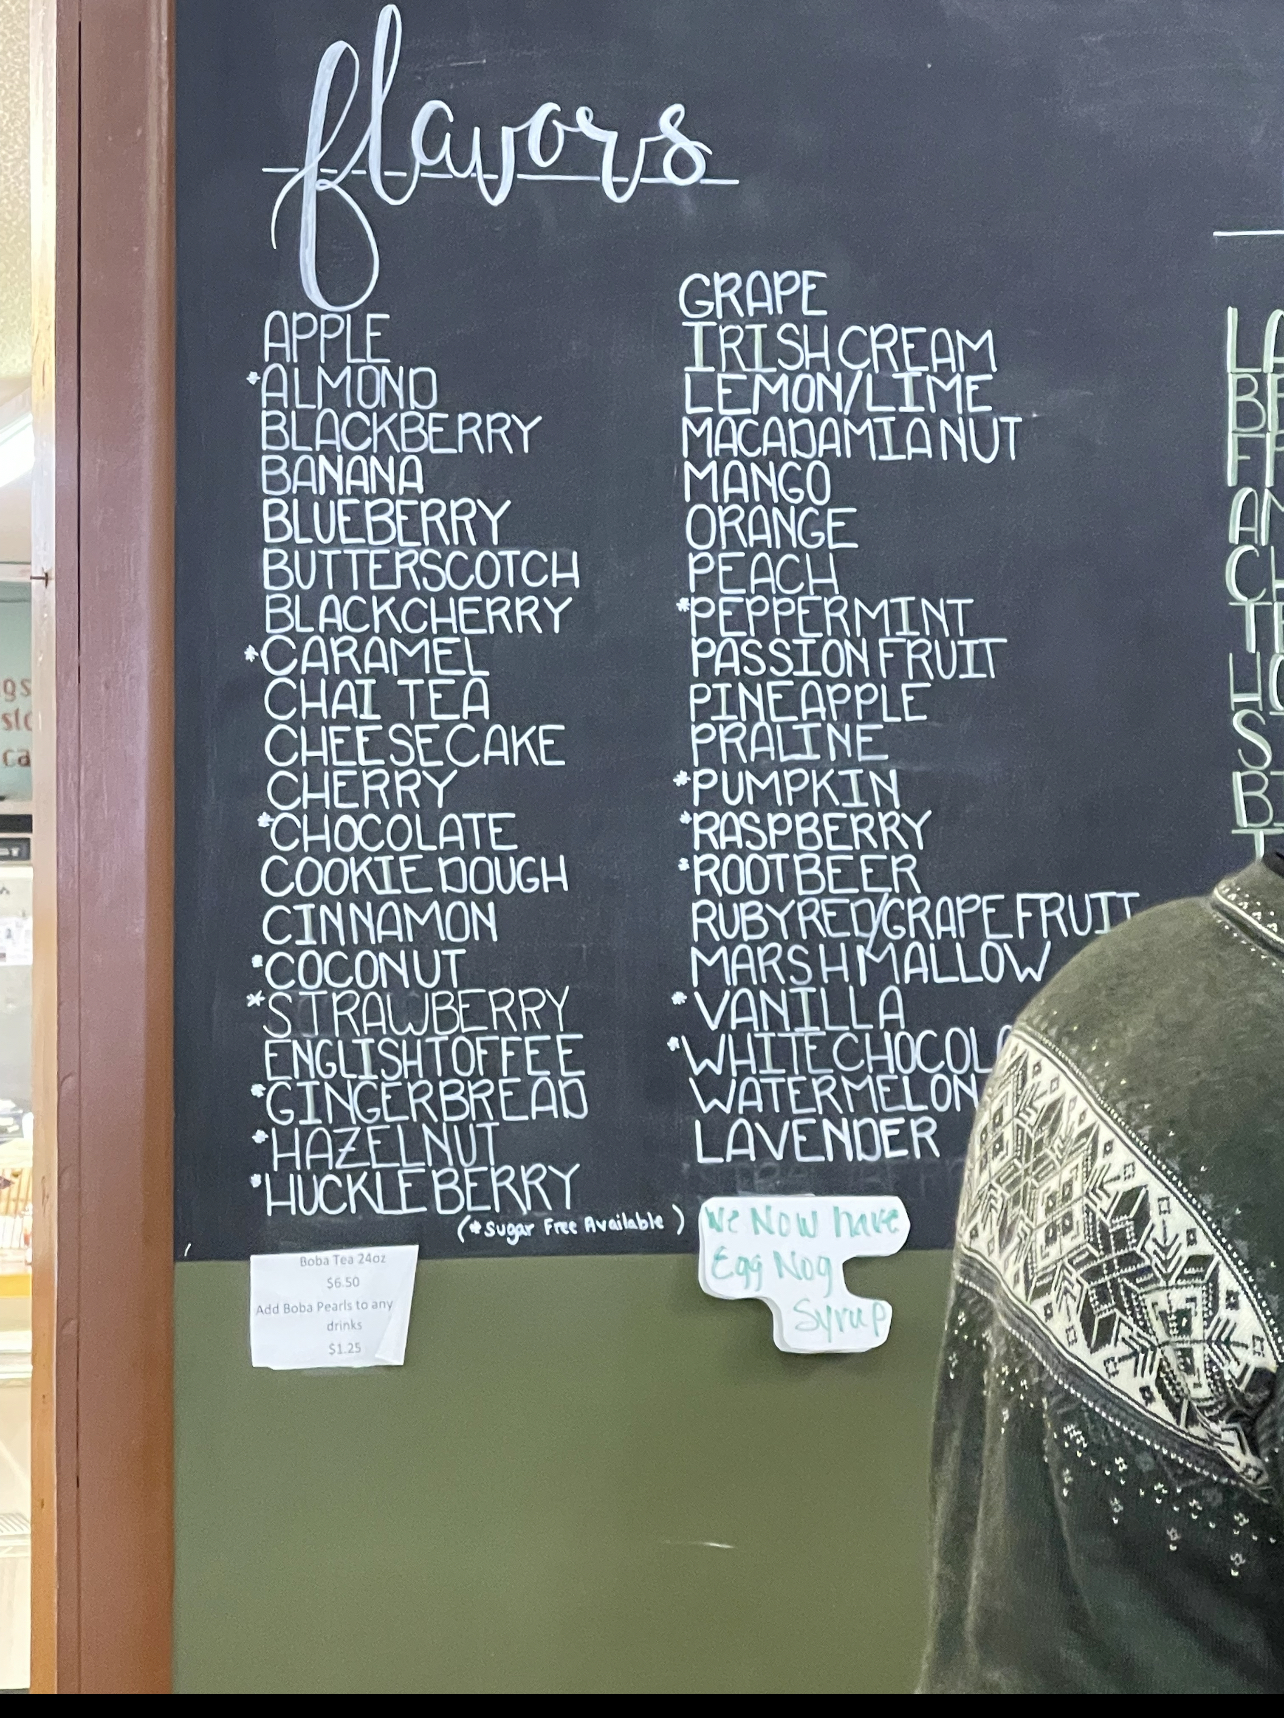 flavors
APPLE
*ALMOND
BLACKBERRY
BANANA
BLUEBERRY
BUTTERSCOTCH
BLACKCHERRY
*CARAMEL
CHAI TEA
CHEESECAKE
CHERRY
*CHOCOLATE
COOKIE DOUGH
CINNAMON
*COCONUT
*STRAWBERRY
ENGLISH TOFFEE
*GINGERBREAD
*HAZELNUT
*HUCKLEBERRY
(*Sugar Free Available)
GRAPE
IRISH CREAM
LEMON/LIME
MACADAMIA NUT
MANGO
ORANGE
PEACH
*PEPPERMINT
PASSION FRUIT
PINEAPPLE
PRALINE
*PUMPKIN
*RASPBERRY
*ROOTBEER
RUBYRED/GRAPEFRUIT
MARSHMALLOW
*VANILLA
*WHITE CHOCOL
WATERMELON
LAVENDER
Boba Tea 24oz
$6.50
Add Boba Pearls to any
drinks
$1.25
We Now have
Egg Nog
Syrup